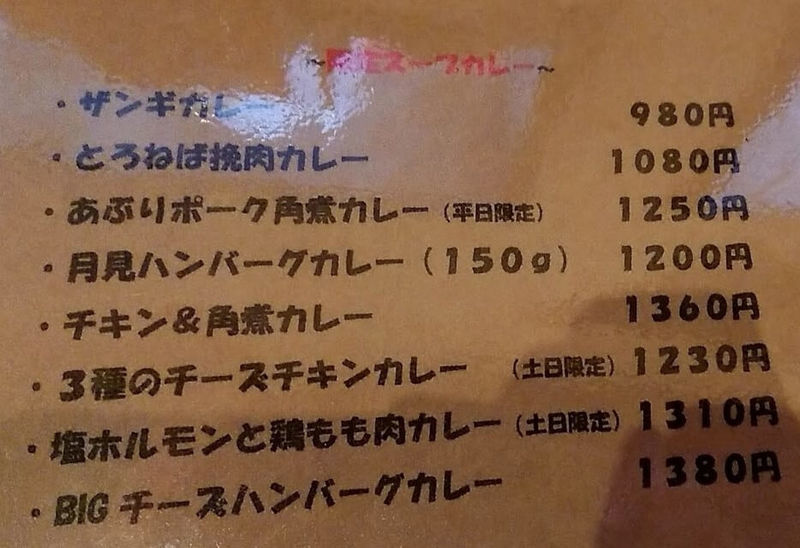 ～限定スープカレー～
・ザンギカレー 980円
・とろねば挽肉カレー 1080円
・あぶりポーク角煮カレー（平日限定） 1250円
・月見ハンバーグカレー（150g） 1200円
・チキン＆角煮カレー 1360円
・3種のチーズチキンカレー （土日限定） 1230円
・塩ホルモンと鶏もも肉カレー（土日限定） 1310円
・BIG チーズハンバーグカレー 1380円